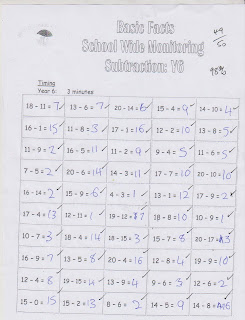 Basic Facts
49/50
School Wide Monitoring
Subtraction: Y6
98%
Timing
Year 6: 3 minutes
18 - 11 = 7 13 - 6 = 7 20 - 14 = 6 15 - 4 = 9 14 - 10 = 4
16 - 1 = 15 11 - 8 = 3 17 - 1 = 16 12 - 2 = 10 13 - 8 = 5
11 - 9 = 2 16 - 5 = 11 11 - 2 = 9 9 - 4 = 5 11 - 6 = 5
7 - 5 = 2 20 - 6 = 14 14 - 3 = 11 17 - 7 = 10 20 - 10 = 10
16 - 14 = 2 15 - 9 = 6 4 - 3 = 1 13 - 12 = 1 17 - 9 = 2
17 - 4 = 13 12 - 11 = 1 19 - 12 = 7 18 - 8 = 10 10 - 9 = 1
10 - 7 = 3 18 - 4 = 14 18 - 15 = 3 15 - 7 = 8 20 - 17 = 3
16 - 9 = 7 13 - 5 = 8 20 - 4 = 16 12 - 8 = 4 19 - 9 = 10
12 - 4 = 8 19 - 15 = 4 13 - 9 = 4 9 - 6 = 3 12 - 6 = 2
15 - 0 = 15 15 - 2 = 13 8 - 6 = 2 14 - 5 = 9 14 - 8 = 6